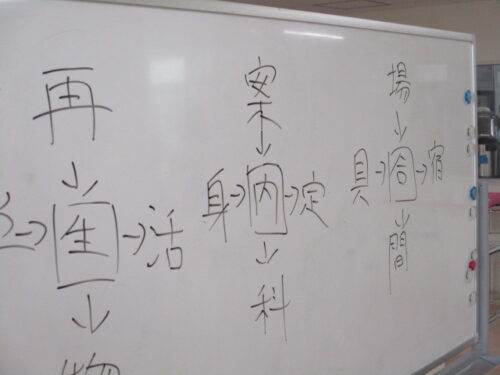 再
↓
→生→活
↓
物
案
↓
身→内→定
↓
科
場
↓
具→合→宿
↓
間